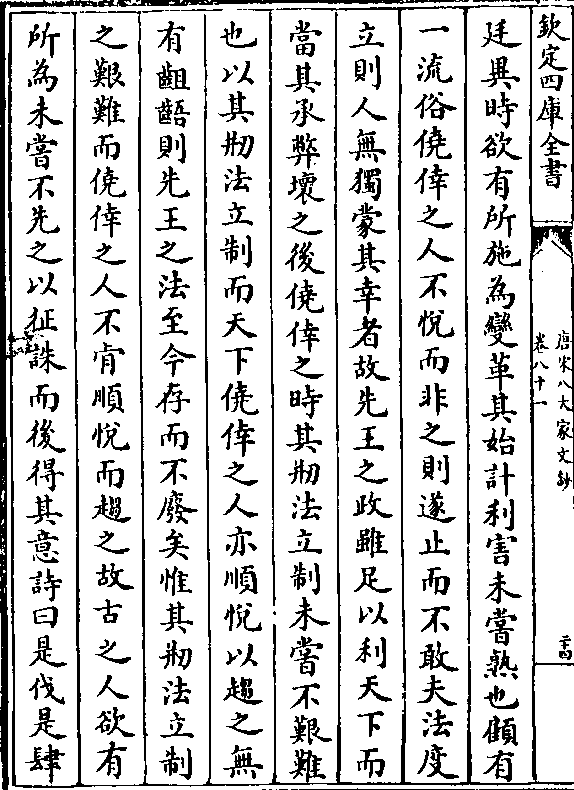 欽定四庫全書
唐宋八大家文鈔
卷八十一
二十四
廷異時欲有所施為變革其始計利害未嘗熟也顧有
一流俗僥倖之人不悅而非之則遂止而不敢夫法度
立則人無獨蒙其幸者故先王之政雖足以利天下而
當其承弊壞之後僥倖之時其刱法立制未嘗不艱難
也以其刱法立制而天下僥倖之人亦順悅以趨之無
有齟齬則先王之法至今存而不廢矣惟其刱法立制
之艱難而僥倖之人不肯順悅而趨之故古之人欲有
所為未嘗不先之以征誅而後得其意詩曰是伐是肆